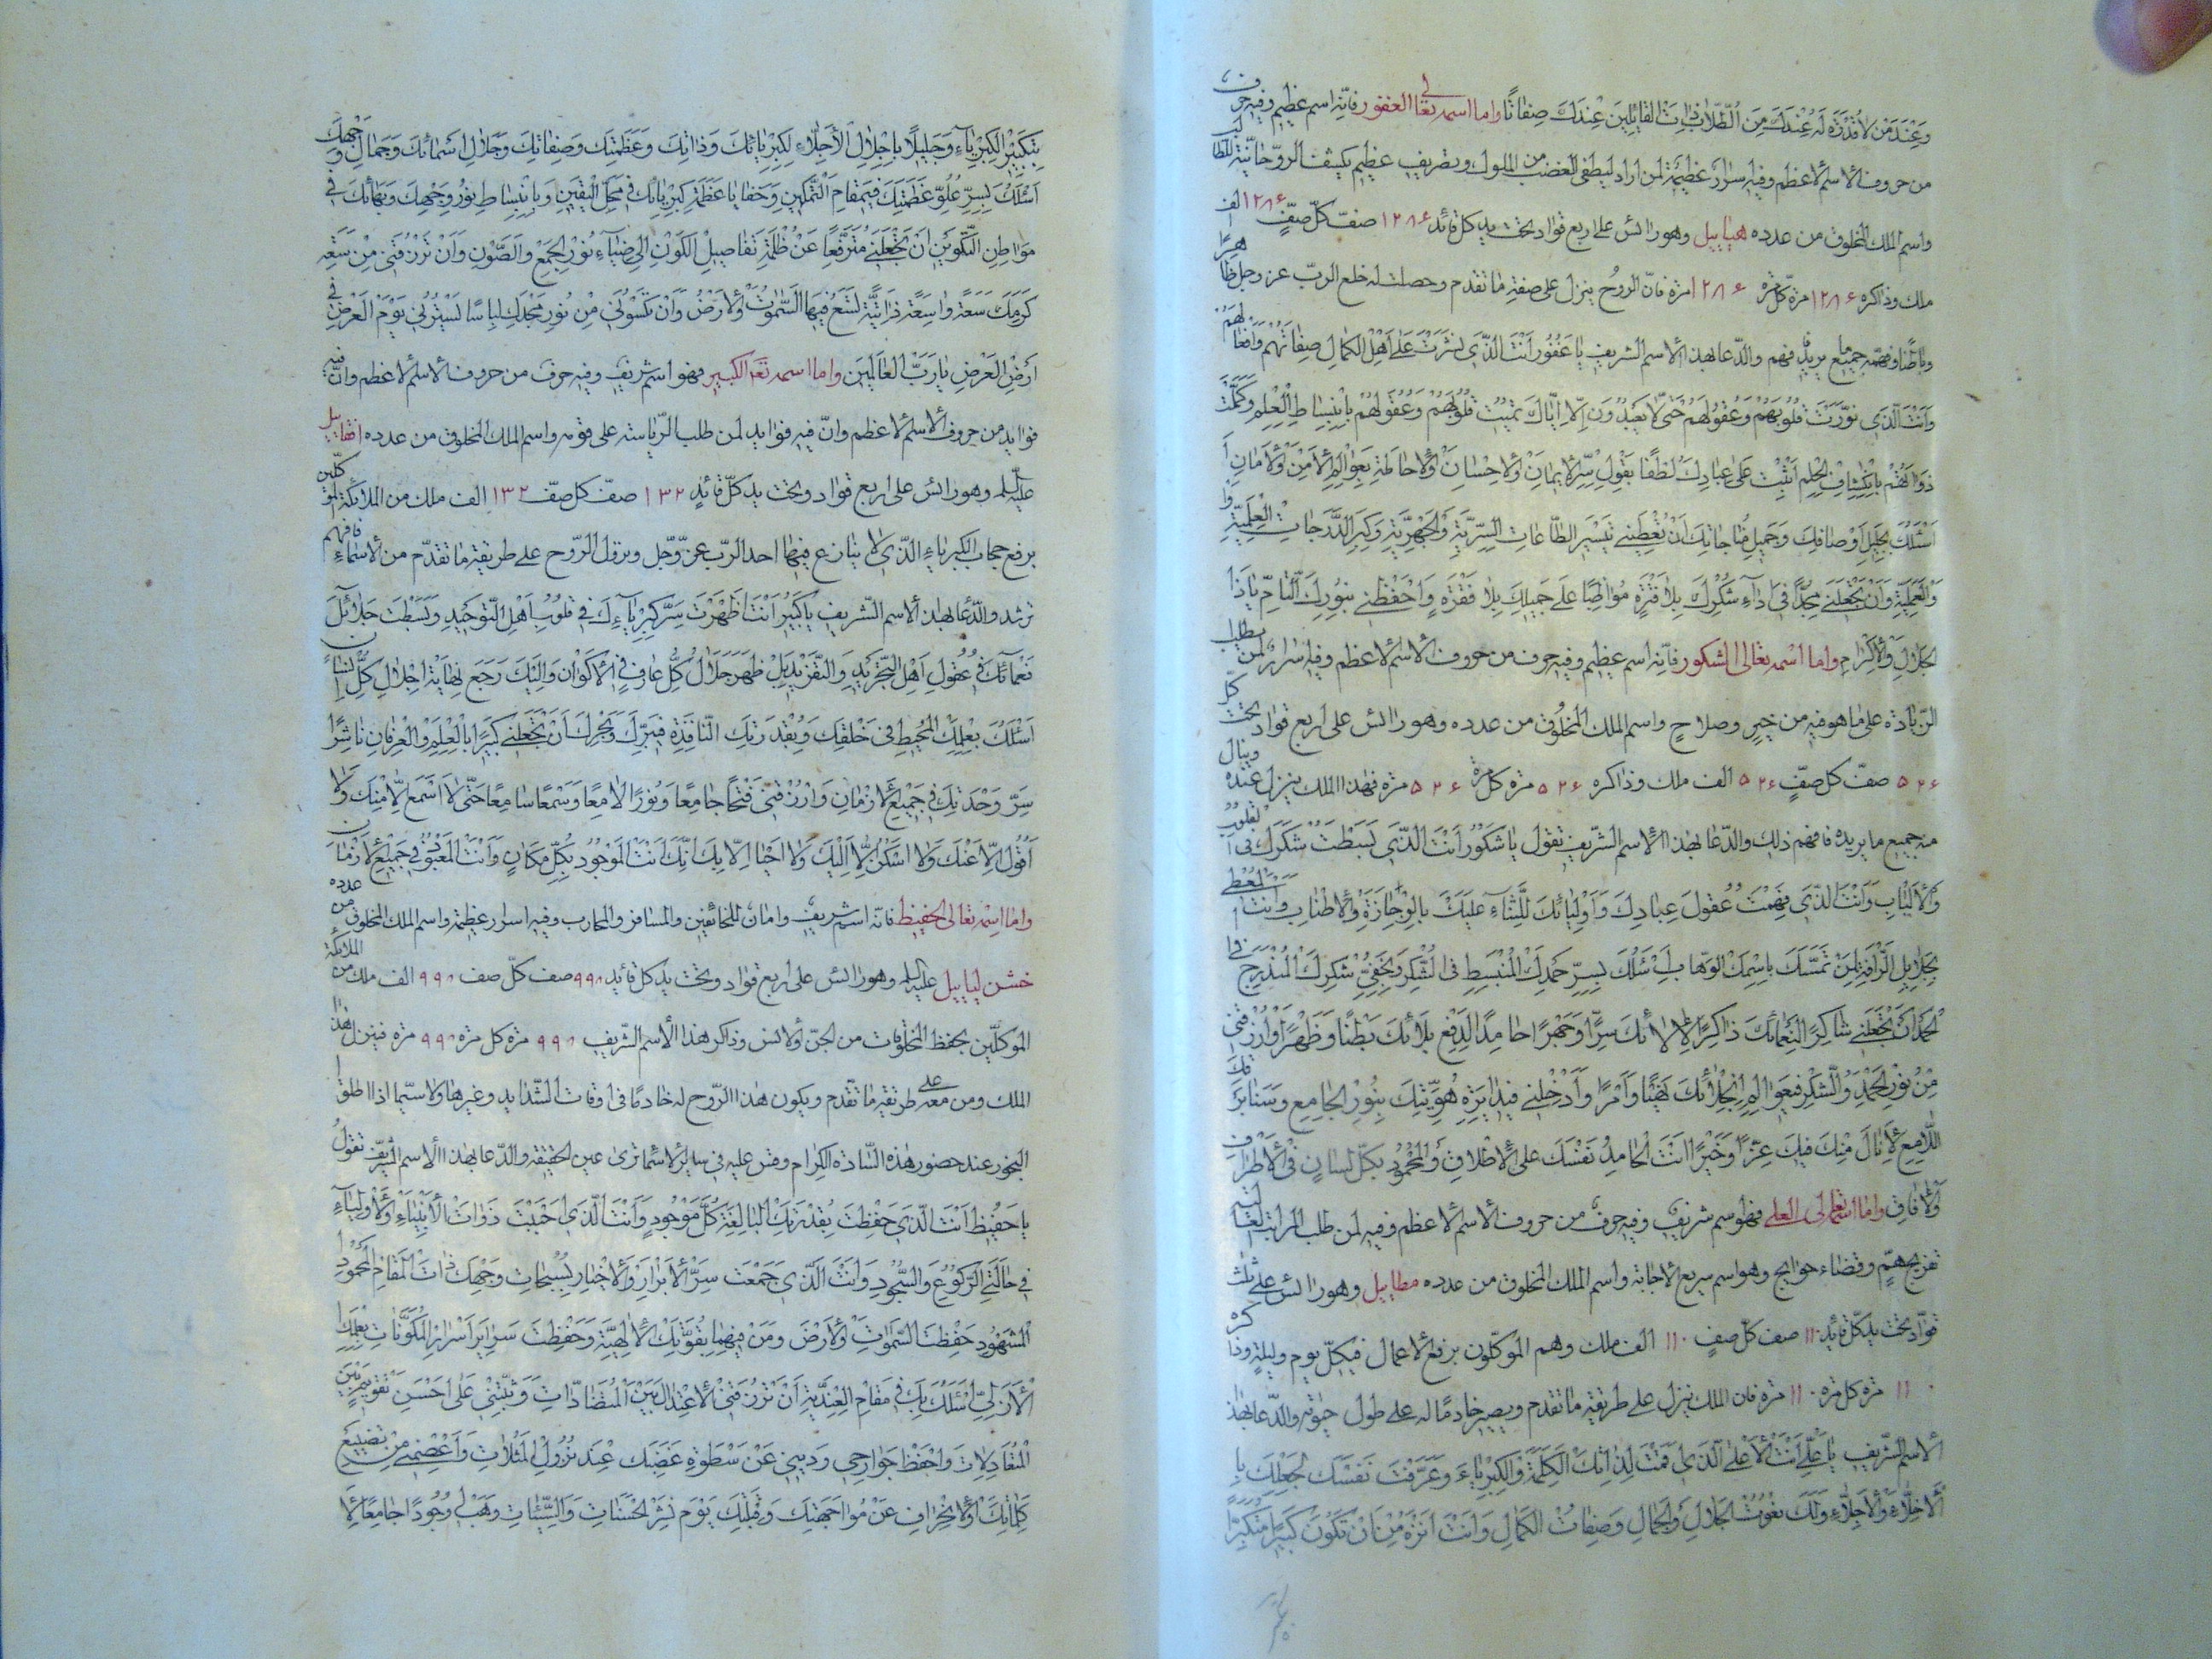 وَعِنْدَ مَنْ لَا قُدْرَةَ لَهُ عِنْدَكَ مِنَ الطُّلَّابِ الْقَائِلِينَ عِنْدَكَ صِفَاتًا واما اسمه تعالى الغفور فانّه اسم عظيم وفيه حرف
من حروف الاسم الاعظم وفيه اسرار عظيمة لمن اراد ليطفى الغضب من الملوك وتصريف عظيم يكشف الروحانية للطالب
واسم الملك المخلوق من عدده هيائيل وهو رائس على اربع قوّاد تحت يد كل قائد ١٢٨۶ صفّ كلّ صفّ ١٢٨۶ الف
ملك وذاكره ١٢٨۶ مرّة كل مرّة ١٢٨۶ مرّة فانّ الروح ينزل على صفة ما تقدم وحصلت له خلع الربّ عز وجل ظاهرًا
وباطنًا وفهّمه جميع ما يريد فافهم والدّعا بهذا الاسم الشريف يَا غَفُورُ أَنْتَ الَّذِي نَشَرْتَ عَلَى أَهْلِ الْكَمَالِ صِفَاتَهُمْ وَأَفْعَالَهُمْ
وَأَنْتَ الَّذِي نَوَّرْتَ قُلُوبَهُمْ وَعُقُولَهُمْ حَتَّى لَا يَعْبُدُونَ إِلَّا إِيَّاكَ ثَبَّتْتَ قُلُوبَهُمْ وَعُقُولَهُمْ بِانْبِسَاطِ الْعِلْمِ وَكَمَّلْتَ
ذَوَاتَهُمْ بِانْكِشَافِ الْحِلْمِ أَثْبَتَّ عَلَى عِبَادِكَ لُطْفًا بِقَوْلِ سِرِّ الْإِيمَانِ وَالْإِحْسَانِ وَالْإِحَاطَةِ بِعَوَالِمِ الْأَمْنِ وَالْأَمَانِ
أَسْئَلُكَ بِجَلِيلِ أَوْصَافِكَ وَجَمِيلِ مُنَاجَاتِكَ أَنْ تُعْطِيَنِي تَيْسِيرَ الطَّاعَاتِ السِّرِّيَّةِ وَالْجَهْرِيَّةِ وَكَبِّرِ الدَّرَجَاتِ الْعِلْمِيَّةِ
وَالْعَمَلِيَّةِ وَأَنْ تَجْعَلَنِي مُجِدًّا فِي أَدَاءِ شُكْرِكَ بِلَا فَتْرَةٍ مُوَاظِبًا عَلَى جَمِيلِكَ بِلَا فَقْرَةٍ وَاحْفَظْنِي بِنُورِكَ التَّامِّ يَا ذَا
الْجَلَالِ وَالْإِكْرَامِ واما اسمه تعالى الشكور فانّه اسم عظيم وفيه حرف من حروف الاسم الاعظم وفيه اسرار لمن يطلب
الزيادة على ما هو فيه من خير وصلاح واسم الملك المخلوق من عدده وهو رائس على اربع قوّاد تحت كلّ
٥٢۶ صفّ كل صفّ ٥٢۶ الف ملك وذاكره ٥٢۶ مرة كل مرة ٥٢۶ مرّة فهذا الملك ينزل عنده وينال
منه جميع ما يريده فافهم ذلك والدّعا بهذا الاسم الشّريف تقول يَا شَكُورُ أَنْتَ الَّذِي بَسَطْتَ شُكْرَكَ فِي الْقُلُوبِ
وَالْأَلْبَابِ وَأَنْتَ الَّذِي فَهَّمْتَ عُقُولَ عِبَادِكَ وَأَوْلِيَائِكَ لِلثَّنَاءِ عَلَيْكَ بِالْوَجَازَةِ وَالْإِطْنَابِ وَأَنْتَ الْمُعْطِي
بِجَلَائِلِ الرَّأْفَةِ لِمَنْ تَمَسَّكَ بِاسْمِكَ الْوَهَّابِ أَسْئَلُكَ بِسِرِّ حَمْدِكَ الْمُنْبَسِطِ فِي الشُّكْرِ وَبِخَفِيِّ شُكْرِكَ الْمُنْدَرِجِ فِي
الْحَمْدِ أَنْ تَجْعَلَنِي شَاكِرًا لِنَعْمَائِكَ ذَاكِرًا لِآلَائِكَ سِرًّا وَجَهْرًا حَامِدًا لِدَفْعِ بَلَائِكَ بَطْنًا وَظَهْرًا وَارْزُقْنِي
مِنْ نُورِ الْحَمْدِ وَالشُّكْرِ فِي عَوَالِمِ انْجِلَائِكَ نَهْيًا وَأَمْرًا وَأَدْخِلْنِي فِي دَائِرَةِ هُوِيَّتِكَ بِنُورِ الْجَامِعِ وَسَنَا بَرْقِكَ
اللَّامِعِ لِأَنَالَ مِنْكَ فِيكَ عِزًّا وَخَيْرًا أَنْتَ الْحَامِدُ نَفْسَكَ عَلَى الْإِطْلَاقِ وَالْمَحْمُودُ بِكُلِّ لِسَانٍ فِي الْأَطْرَافِ
وَالْآفَاقِ واما اسمه تعالى العلى فهو اسم شريف وفيه حرف من حروف الاسم الاعظم وفيه لمن طلب المراتب العالية
تفريج همّ وقضاء حوايج وهو اسم سريع الاجابة واسم الملك المخلوق من عدده مطاييل وهو رائس على ثلث
قوّاد تحت يد كلّ قائد ١١٠ صف كلّ صفٍ ١١٠ الف ملك وهم الموكّلون برفع الاعمال في كلّ يوم وليلة وذاكره
١١٠ مرّة كل مرّة ١١٠ مرّة فان الملك ينزل على طريقة ما تقدم ويصير خادمًا له على طول حيوته والدّعا بهذا
الاسم الشّريف يَا عَلِيُّ أَنْتَ الْأَعْلَى الَّذِي أَقَمْتَ لِذَاتِكَ الْكَلِمَةَ وَالْكِبْرِيَاءَ وَعَرَّفْتَ نَفْسَكَ لِجَعْلِكَ يَا
الْأَخِلَّاءِ وَالْأَجِلَّاءِ وَلَكَ نُعُوتُ الْجَلَالِ وَالْجَمَالِ وَصِفَاتُ الْكَمَالِ وَأَنْتَ أَنْزَهُ مِنْ أَنْ تَكُونَ كَبِيرًا مُتَكَبِّرًا
بِتَكْبِيرِ الْكِبْرِيَاءِ وَجَلِيلًا بِإِجْلَالِ الْأَجِلَّاءِ لِكِبْرِيَائِكَ وَذَاتِكَ وَعَظَمَتِكَ وَصِفَاتِكَ وَجَلَالِ أَسْمَائِكَ وَجَمَالِ وَجْهِكَ
أَسْئَلُكَ بِسِرِّ عُلُوِّ عَظَمَتِكَ فِي مَقَامِ التَّمْكِينِ وَخَفَايَا عَظَمَةِ كِبْرِيَائِكَ فِي مَحَلِّ الْيَقِينِ وَبِانْبِسَاطِ نُورِ وَجْهِكَ وَبَهَائِكَ فِي
مَوَاطِنِ التَّكْوِينِ أَنْ تَجْعَلَنِي مُتَرَفِّعًا عَنْ ظُلْمَةِ تَفَاصِيلِ الْكَوْنِ إِلَى ضِيَاءِ نُورِ الْجَمْعِ وَالصَّوْنِ وَأَنْ تَرْزُقَنِي مِنْ سَعَةِ
كَرَمِكَ سَعَةً وَاسِعَةً ذَاتِيَّةً تَسَعُ فِيهَا السَّمٰوَاتُ وَالْأَرْضُ وَأَنْ تَكْسُوَنِي مِنْ نُورِ مَجْدِكَ لِبَاسًا يَسْتُرُنِي يَوْمَ الْعَرْضِ فِي
أَرْضِ الْعَرْضِ يَا رَبَّ الْعَالَمِينَ واما اسمه تعَ الكبير فهو اسم شريف وفيه حرف من حروف الاسم الاعظم وانّ فيه
فوايد من حروف الاسم الاعظم وانّ فيه فوايد لمن طلب الرّياسة على قومه واسم الملك المخلوق من عدده
عليه السلم وهو رائس على اربع قوّاد وتحت يد كلّ قائدٍ ١٣٢ صفّ كل صفّ ١٣٢ الف ملك من الملائكة الموكّلين
برفع حجاب الكبرياء الّذى لا ينازع فيها احد الربّ عزّ وجل ويرقى الروح على طريقة ما تقدّم من الاسماء فافهم
ترشد والدّعا بهذا الاسم الشّريف يَا كَبِيرُ أَنْتَ أَظْهَرْتَ سِرَّ كِبْرِيَاءِكَ فِي قُلُوبِ أَهْلِ التَّوْحِيدِ وَبَسَطْتَ جَلَائِلَ
نَعْمَائِكَ فِي عُقُولِ أَهْلِ التَّجْرِيدِ وَالتَّفْرِيدِ بَلْ ظَهَرَ جَلَالُ كُلِّ عَارِفٍ فِي الْأَكْوَانِ وَإِلَيْكَ رَجَعَ نِهَايَةُ إِجْلَالِ كُلِّ لِسَانٍ
أَسْئَلُكَ بِعِلْمِكَ الْمُحِيطِ فِي خَلْقِكَ وَبِقُدْرَتِكَ النَّافِذَةِ فِي بَرِّكَ وَبَحْرِكَ أَنْ تَجْعَلَنِي كَبِيرًا بِالْعِلْمِ وَالْعِرْفَانِ نَاشِرًا
سِرَّ وَحْدَتِكَ فِي جَمِيعِ الْأَزْمَانِ وَارْزُقْنِي فَتْحًا جَامِعًا وَنُورًا لَامِعًا وَسَمْعًا سَامِعًا حَتَّى لَا أَسْمَعَ إِلَّا مِنْكَ وَلَا
أَقُولَ إِلَّا عَنْكَ وَلَا أَسْكُنَ إِلَّا إِلَيْكَ وَلَا أَحْيَا إِلَّا بِكَ إِنَّكَ أَنْتَ الْمَوْجُودُ بِكُلِّ مَكَانٍ وَأَنْتَ الْمَعْبُودُ فِي جَمِيعِ الْأَزْمَانِ
واما اسمه تعالى الحفيظ فانّه اسم شريف وامان للخائفين والمسافر والمحارب وفيه اسرار عظيمة واسم الملك المخلوق من عدده
خشن ليائيل عليه السلم وهو رائس على اربع قوّاد وتحت يد كل قائد ٩٩٨ صف كلّ صف ٩٩٨ الف ملك من الملائكة
الموكلّين بحفظ المخلوقات من الجنّ والانس وذاكر هذا الاسم الشّريف ٩٩٨ مرّة كل مرّة ٩٩٨ مرّة فينزل هذا
الملك ومن معه على طريقة ما تقدم ويكون هذا الرّوح له خادمًا فى اوقات الشّدايد وغيرها ولا سيّما اذا اطلق
البخور عند حضور هذه السّادة الكرام وقس عليه فى ساير الاسماء ترى عين الحقيقة والدّعا بهذا الاسم الشّريف تقول
يَا حَفِيظُ أَنْتَ الَّذِي حَفِظْتَ بِقُدْرَتِكَ الْبَالِغَةِ كُلَّ مَوْجُودٍ وَأَنْتَ الَّذِي أَحْيَيْتَ ذَوَاتَ الْأَنْبِيَاءِ وَالْأَوْلِيَاءِ
فِي حَالَةِ الرُّكُوعِ وَالسُّجُودِ وَأَنْتَ الَّذِي جَمَعْتَ سِرَّ الْأَبْرَارِ وَالْأَخْيَارِ بِسُبُحَاتِ وَجْهِكَ ذَاتَ الْمَقَامِ الْمَحْمُودِ
الْمَشْهُودِ حَفِظْتَ السَّمٰوَاتِ وَالْأَرْضَ وَمَنْ فِيهِمَا بِقُوَّتِكَ الْإِلٰهِيَّةِ وَحَفِظْتَ سَرَائِرَ أَسْرَارِ الْمُكَوَّنَاتِ بِعِلْمِكَ
الْأَزَلِيِّ أَسْئَلُكَ بِكَ فِي مَقَامِ الْعِنْدِيَّةِ أَنْ تَرْزُقَنِي الْاعْتِدَالَ بَيْنَ الْمُتَضَادَّاتِ وَثَبِّتْنِي عَلَى أَحْسَنِ تَقْوِيمٍ بَيْنَ
الْمُتَعَادِلَاتِ وَاحْفَظْ جَوَارِحِي وَدِينِي عَنْ سَطْوَةِ غَضَبِكَ عِنْدَ نُزُولِ الْمَثُلَاتِ وَاعْصِمْنِي مِنْ تَضْيِيعِ
كَلِمَاتِكَ وَالْانْحِرَافِ عَنْ مُوَاجَهَتِكَ وَقِبْلَتِكَ يَوْمَ نَشْرِ الْحَسَنَاتِ وَالسَّيِّئَاتِ وَهَبْ لِي وُجُودًا جَامِعًا لَا